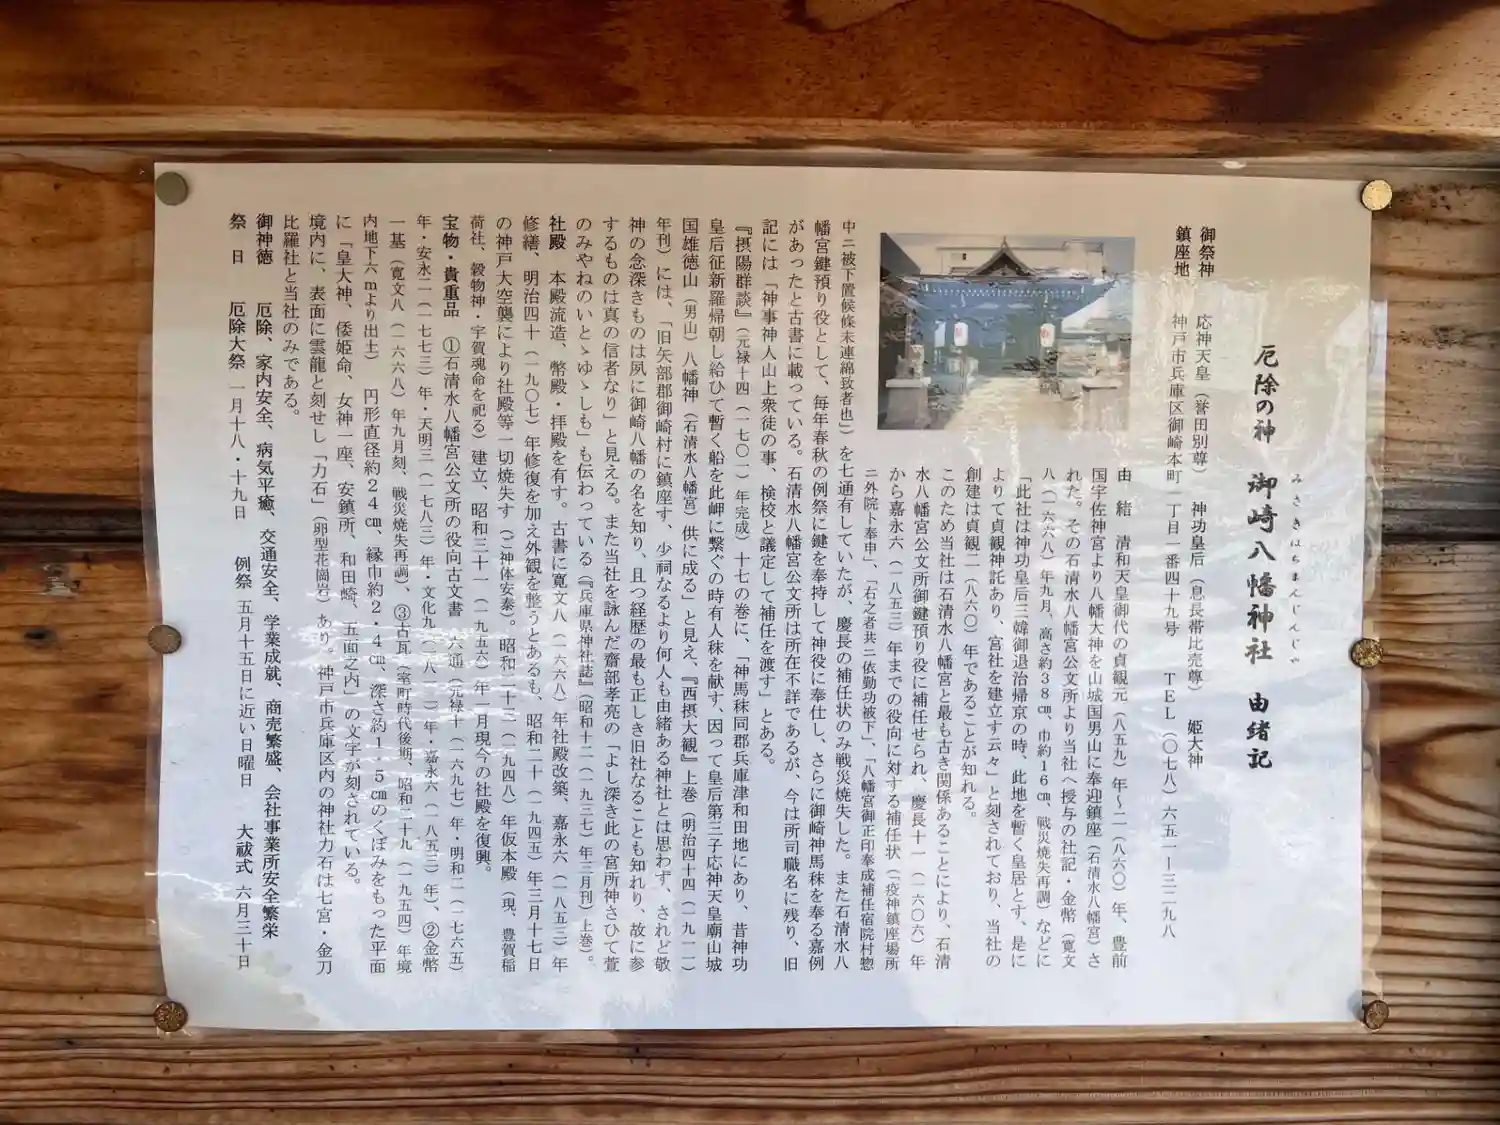 厄除の神　御崎八幡神社　由緒記
みさきはちまんじんじゃ
御祭神　応神天皇（誉田別尊）　神功皇后（息長帯比売尊）　姫大神
鎮座地　神戸市兵庫区御崎本町一丁目一番四十九号　ＴＥＬ（〇七八）六五一ー三二九八
由　緒　清和天皇御代の貞観元（八五九）年〜二（八六〇）年、豊前
国宇佐神宮より八幡大神を山城国男山に奉迎鎮座（石清水八幡宮）さ
れた。その石清水八幡宮公文所より当社へ授与の社記・金幣（寛文
八（一六六八）年九月、高さ約38㎝、巾約16㎝、戦災焼失再調）などに
「此社は神功皇后三韓御退治帰京の時、此地を暫く皇居とす、是に
よりて貞観神託あり、宮社を建立す云々」と刻されており、当社の
創建は貞観二（八六〇）年であることが知れる。
このため当社は石清水八幡宮と最も古き関係あることにより、石清
水八幡宮公文所御鍵預り役に補任せられ、慶長十一（一六〇六）年
から嘉永六（一八五三）年までの役向に対する補任状（「疫神鎮座場所
ニ外院ト奉申」、「右之者共ニ依勤功被下」、「八幡宮御正印奉成補任宿院村惣
中ニ被下置候條未連綿致者也」）を七通有していたが、慶長の補任状のみ戦災焼失した。また石清水八
幡宮鍵預り役として、毎年春秋の例祭に鍵を奉持して神役に奉仕し、さらに御崎神馬秣を奉る嘉例
があったと古書に載っている。石清水八幡宮公文所は所在不詳であるが、今は所司職名に残り、旧
記には「神事神人山上衆徒の事、検校と議定して補任を渡す」とある。
『摂陽群談』（元禄十四（一七〇一）年完成）十七の巻に、「神馬秣同郡兵庫津和田地にあり、昔神功
皇后征新羅帰朝し給ひて暫く船を此岬に繋ぐの時有人秣を献す、因って皇后第三子応神天皇廟山城
国雄徳山（男山）八幡神（石清水八幡宮）供に成る」と見え、『西摂大観』上巻（明治四十四（一九一一）
年刊）には、「旧矢部郡御崎村に鎮座す、少祠なるより何人も由緒ある神社とは思わず、されど敬
神の念深きものは夙に御崎八幡の名を知り、且つ経歴の最も正しき旧社なることも知れり、故に参
するものは真の信者なり」と見える。また当社を詠んだ齋部孝亮の「よし深き此の宮所神さひて萱
のみやねのいとゝゆゝしも」も伝わっている（『兵庫県神社誌』（昭和十二（一九三七）年三月刊）上巻）。
社殿　本殿流造、幣殿・拝殿を有す。古書に寛文八（一六六八）年社殿改築、嘉永六（一八五三）年
修繕、明治四十（一九〇七）年修復を加え外観を整うとあるも、昭和二十（一九四五）年三月十七日
の神戸大空襲により社殿等一切焼失す（ご神体安泰）。昭和二十三（一九四八）年仮本殿（現、豊賀稲
荷社、穀物神・宇賀魂命を祀る）建立、昭和三十一（一九五六）年一月現今の社殿を復興。
宝物・貴重品　①石清水八幡宮公文所の役向古文書　六通（元禄十（一六九七）年・明和二（一七六五）
年・安永二（一七七三）年・天明三（一七八三）年・文化九（一八一二）年・嘉永六（一八五三）年）、②金幣
一基（寛文八（一六六八）年九月刻、戦災焼失再調）、③古瓦（室町時代後期、昭和二十九（一九五四）年境
内地下六ｍより出土）　円形直径約24㎝、縁巾約2・4㎝、深さ約1・5㎝のくぼみをもった平面
に「皇大神、倭姫命、女神一座、安鎮所、和田崎、五面之内」の文字が刻されている。
境内に、表面に雲龍と刻せし「力石」（卵型花崗岩）あり。神戸市兵庫区内の神社力石は七宮・金刀
比羅社と当社のみである。
御神徳　厄除、家内安全、病気平癒、交通安全、学業成就、商売繁盛、会社事業所安全繁栄
祭　日　厄除大祭　一月十八・十九日　例祭　五月十五日に近い日曜日　大祓式　六月三十日